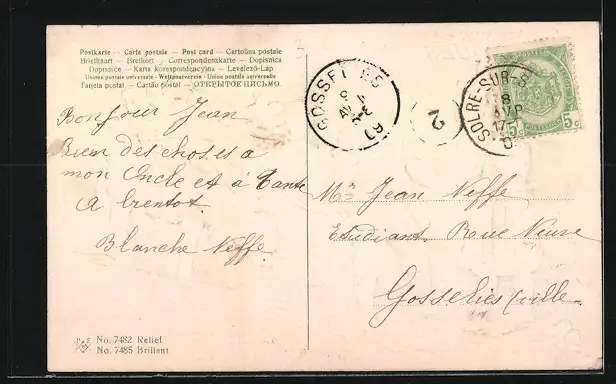 Postkarte — Carte postale — Post card — Cartolina postale
Briefkaart — Brefkort — Correspondenzkarte — Dopisnica
Dopisnice — Karta korespondencyjna — Levelező-Lap
Unione postale universale - Weltpostverein - Union postale universelle
Tarjeta postal — Cartão postal — ОТКРЫТОЕ ПИСЬМО.
Bonjour Jean
Bien des choses a
mon Oncle et à Tante
A bientot.
Blanche Neffe
No. 7482 Relief
No. 7485 Brillant
GOSSEL
2
SOLRE-SUR-S
5c 5c
Mr Jean Neffe
Etudiant. Rue Neuve
Gosselies (ville